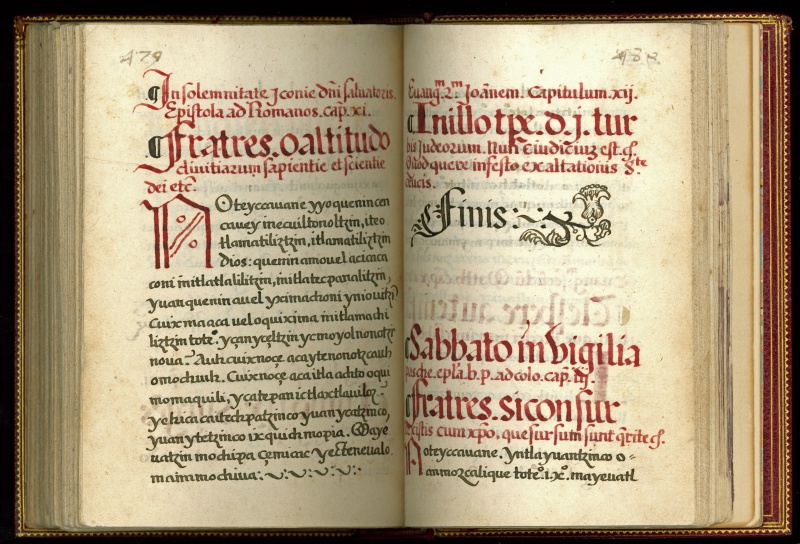 479
In solemnitate Iconie dñi saluatoris.
Epistola ad Romanos. cap. xi.
Fratres. o altitudo
diuitiarum sapientie et scientie
dei etc.
Noteyccauane yyo quenin cen
cauey inecuiltonoltzin, iteo
tlamatiliztzin, itlamatiliztzin
dios: quenin amouel acicaca
coni initlatlalilitzin, initlatecpanalitzin,
yuan quenin auel yximachoni yniouitzī
Cuix ma aca uel oquixima initlamachi
liztzin toteº. yçan yçeltzin ycmoyolnonotz
noua. Auh cuix noçe aca ytenonotzcauh
omochiuh. Cuix noçe aca itla achto oqui
momaquili, yçatepan ictlaxtlauiloz
yehica ca itechpatzinco yuan ycatzinco,
yuan ytetzinco ixquich mopia. Maye
uatzin mochipa çemicac yecteneualo
ma immochiua:
Euangᵐ. ẜᵐ. Joānem. Capitulum. xij.
In illo tpe. d. j. tur
bis judeorum. Nunc
Quod quere in festo exaltationis
crucis.
Finis:
Sabbato in vigilia
pasche. epla. b. p. ad colo. cap.
Fratres. si consur
rexistis cum xpo, que sursum sunt
Noteyccauane. Yntla yuantzinco o=
anmozcalique toteº. i. xº. ma yeuatl